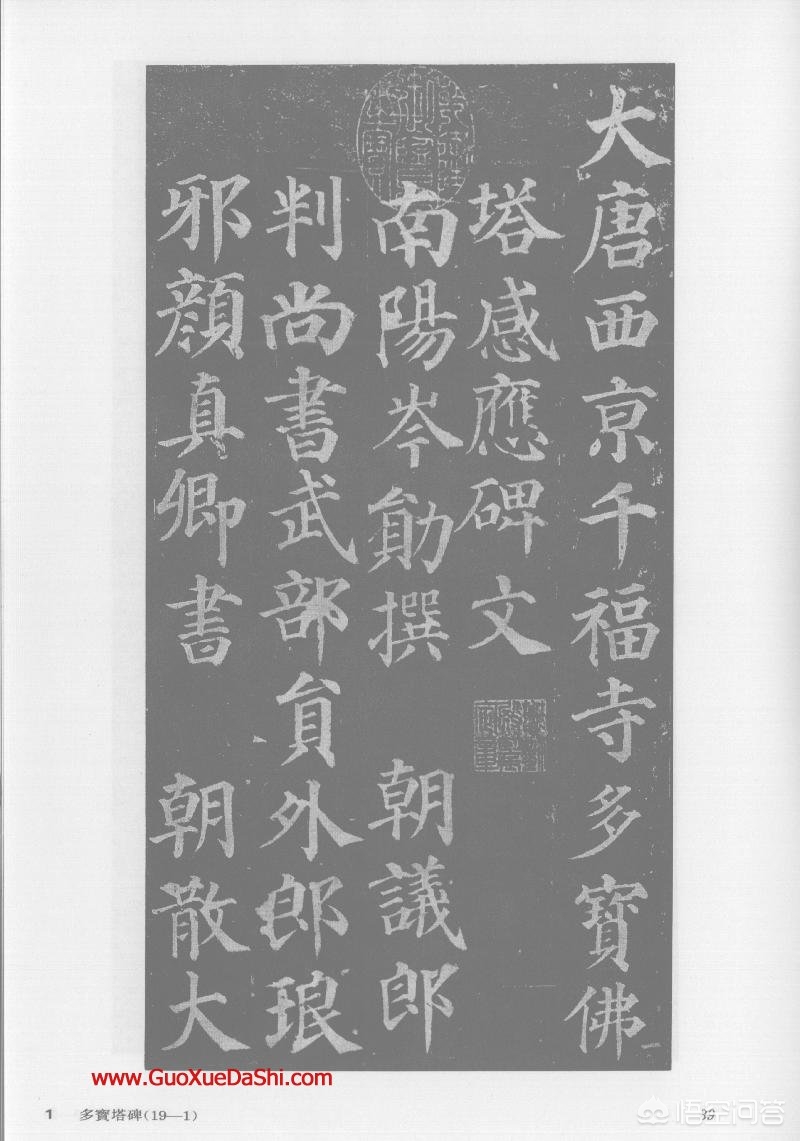 大唐西京千福寺多寶佛
塔感應碑文
南陽岑勛撰 朝議郎
判尚書武部員外郎琅
邪顏真卿書 朝散大
www.GuoXueDaShi.com
1 多寶塔碑(19—1)
89
悟空问答